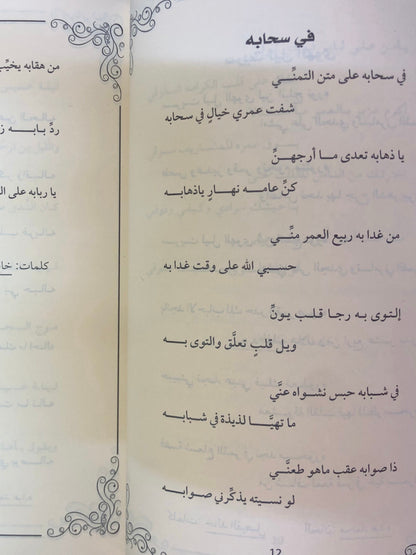 في سحابه
في سحابه على متن التمنِّي
شفت عمري خيالٍ في سحابه
يا ذهابه تعدى ما أرجهنِّ
كنِّ عامه نهارٍ ياذهابه
من غدا به ربيع العمر منِّي
حسبي الله على وقت غدا به
إلتوى به رجا قلب يونِّ
ويل قلبٍ تعلَّق والتوى به
في شبابه حبس نشواه عنَّي
ما تهيَّا لذيذة في شبابه
ذا صوابه عقب ماهو طعنَّي
لو نسيته يذكِّرني صوابه
12
من هقابه يخيِّب
ردِّ بابه
يا ربابه على
كلمات: